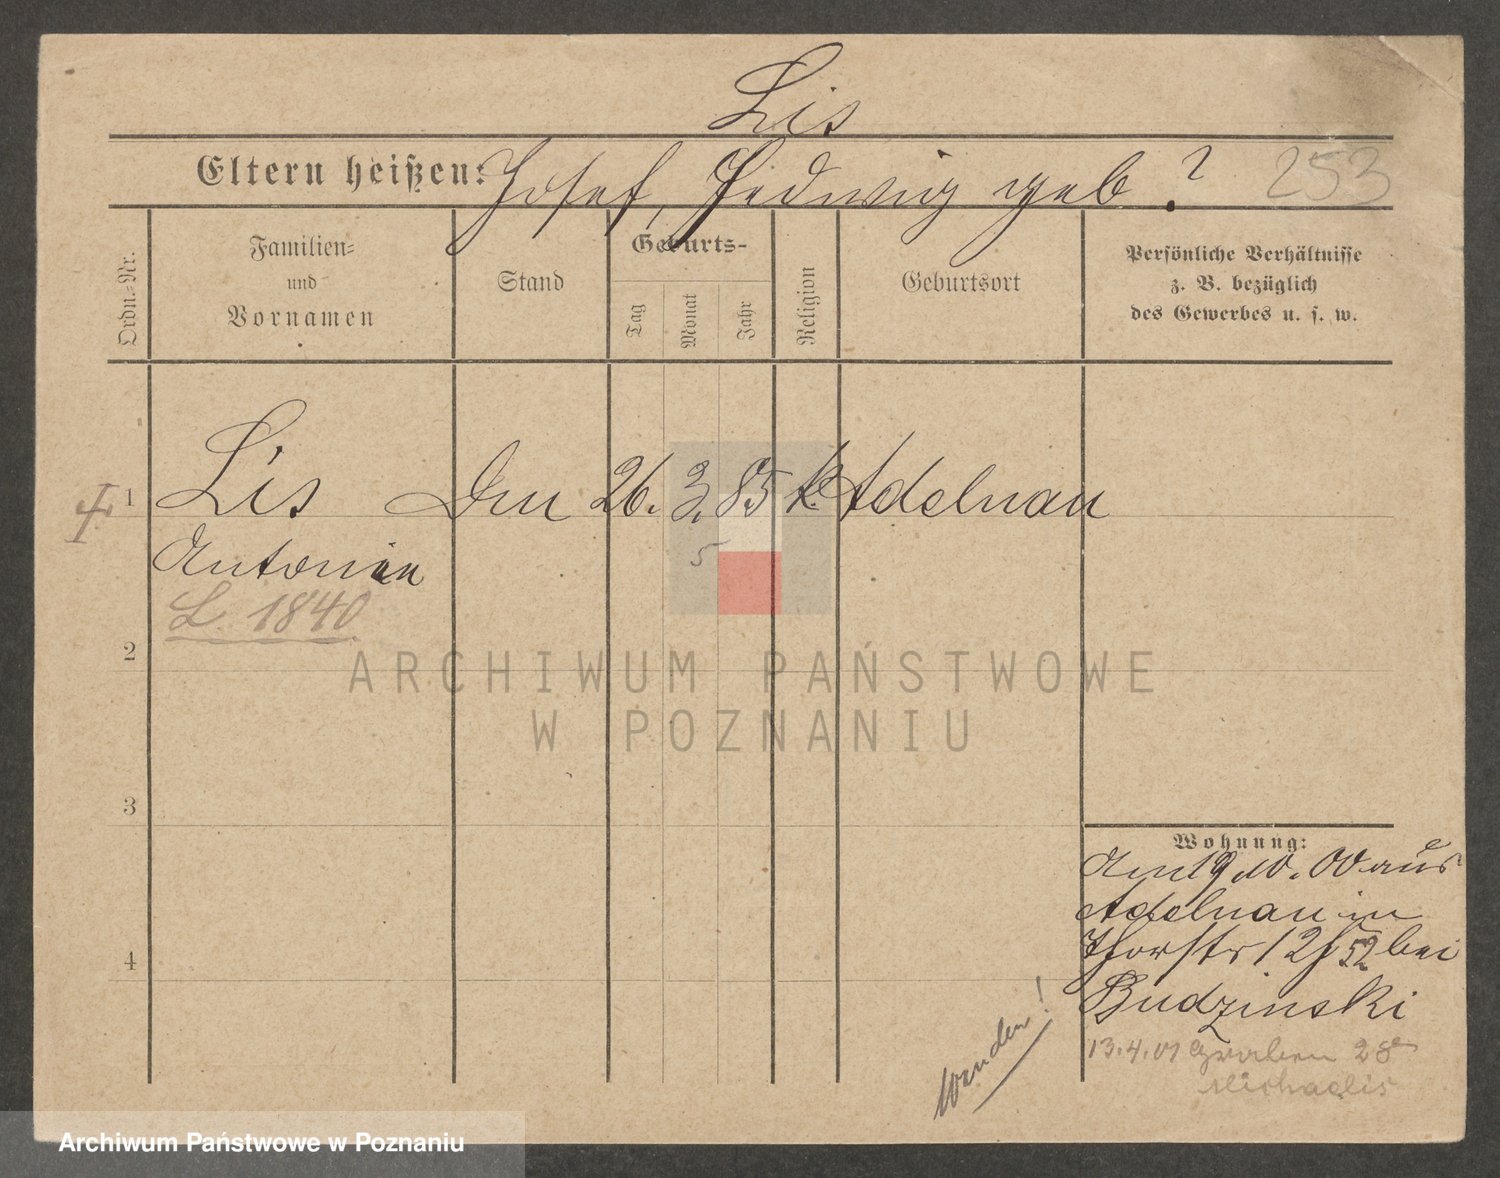 Lis
Eltern heißen: Josef, Hedwig geb. ?
253
Ordn.-Nr.
Familien-
und
Vornamen
Stand
Geburts-
Tag
Monat
Jahr
Religion
Geburtsort
Persönliche Verhältnisse
z. B. bezüglich
des Gewerbes u. s. w.
1 Lis 26. 3. 85 k. Adelnau
5
Antonie
L. 1840
2
ARCHIWUM PAŃSTWOWE
W POZNANIU
3
4
Wohnung:
Am 19.10.00 aus
Adelnau in
Thorstr 12 bei
Budzinski
13.4.01 Graben 28
Michaelis
wenden!
Archiwum Państwowe w Poznaniu